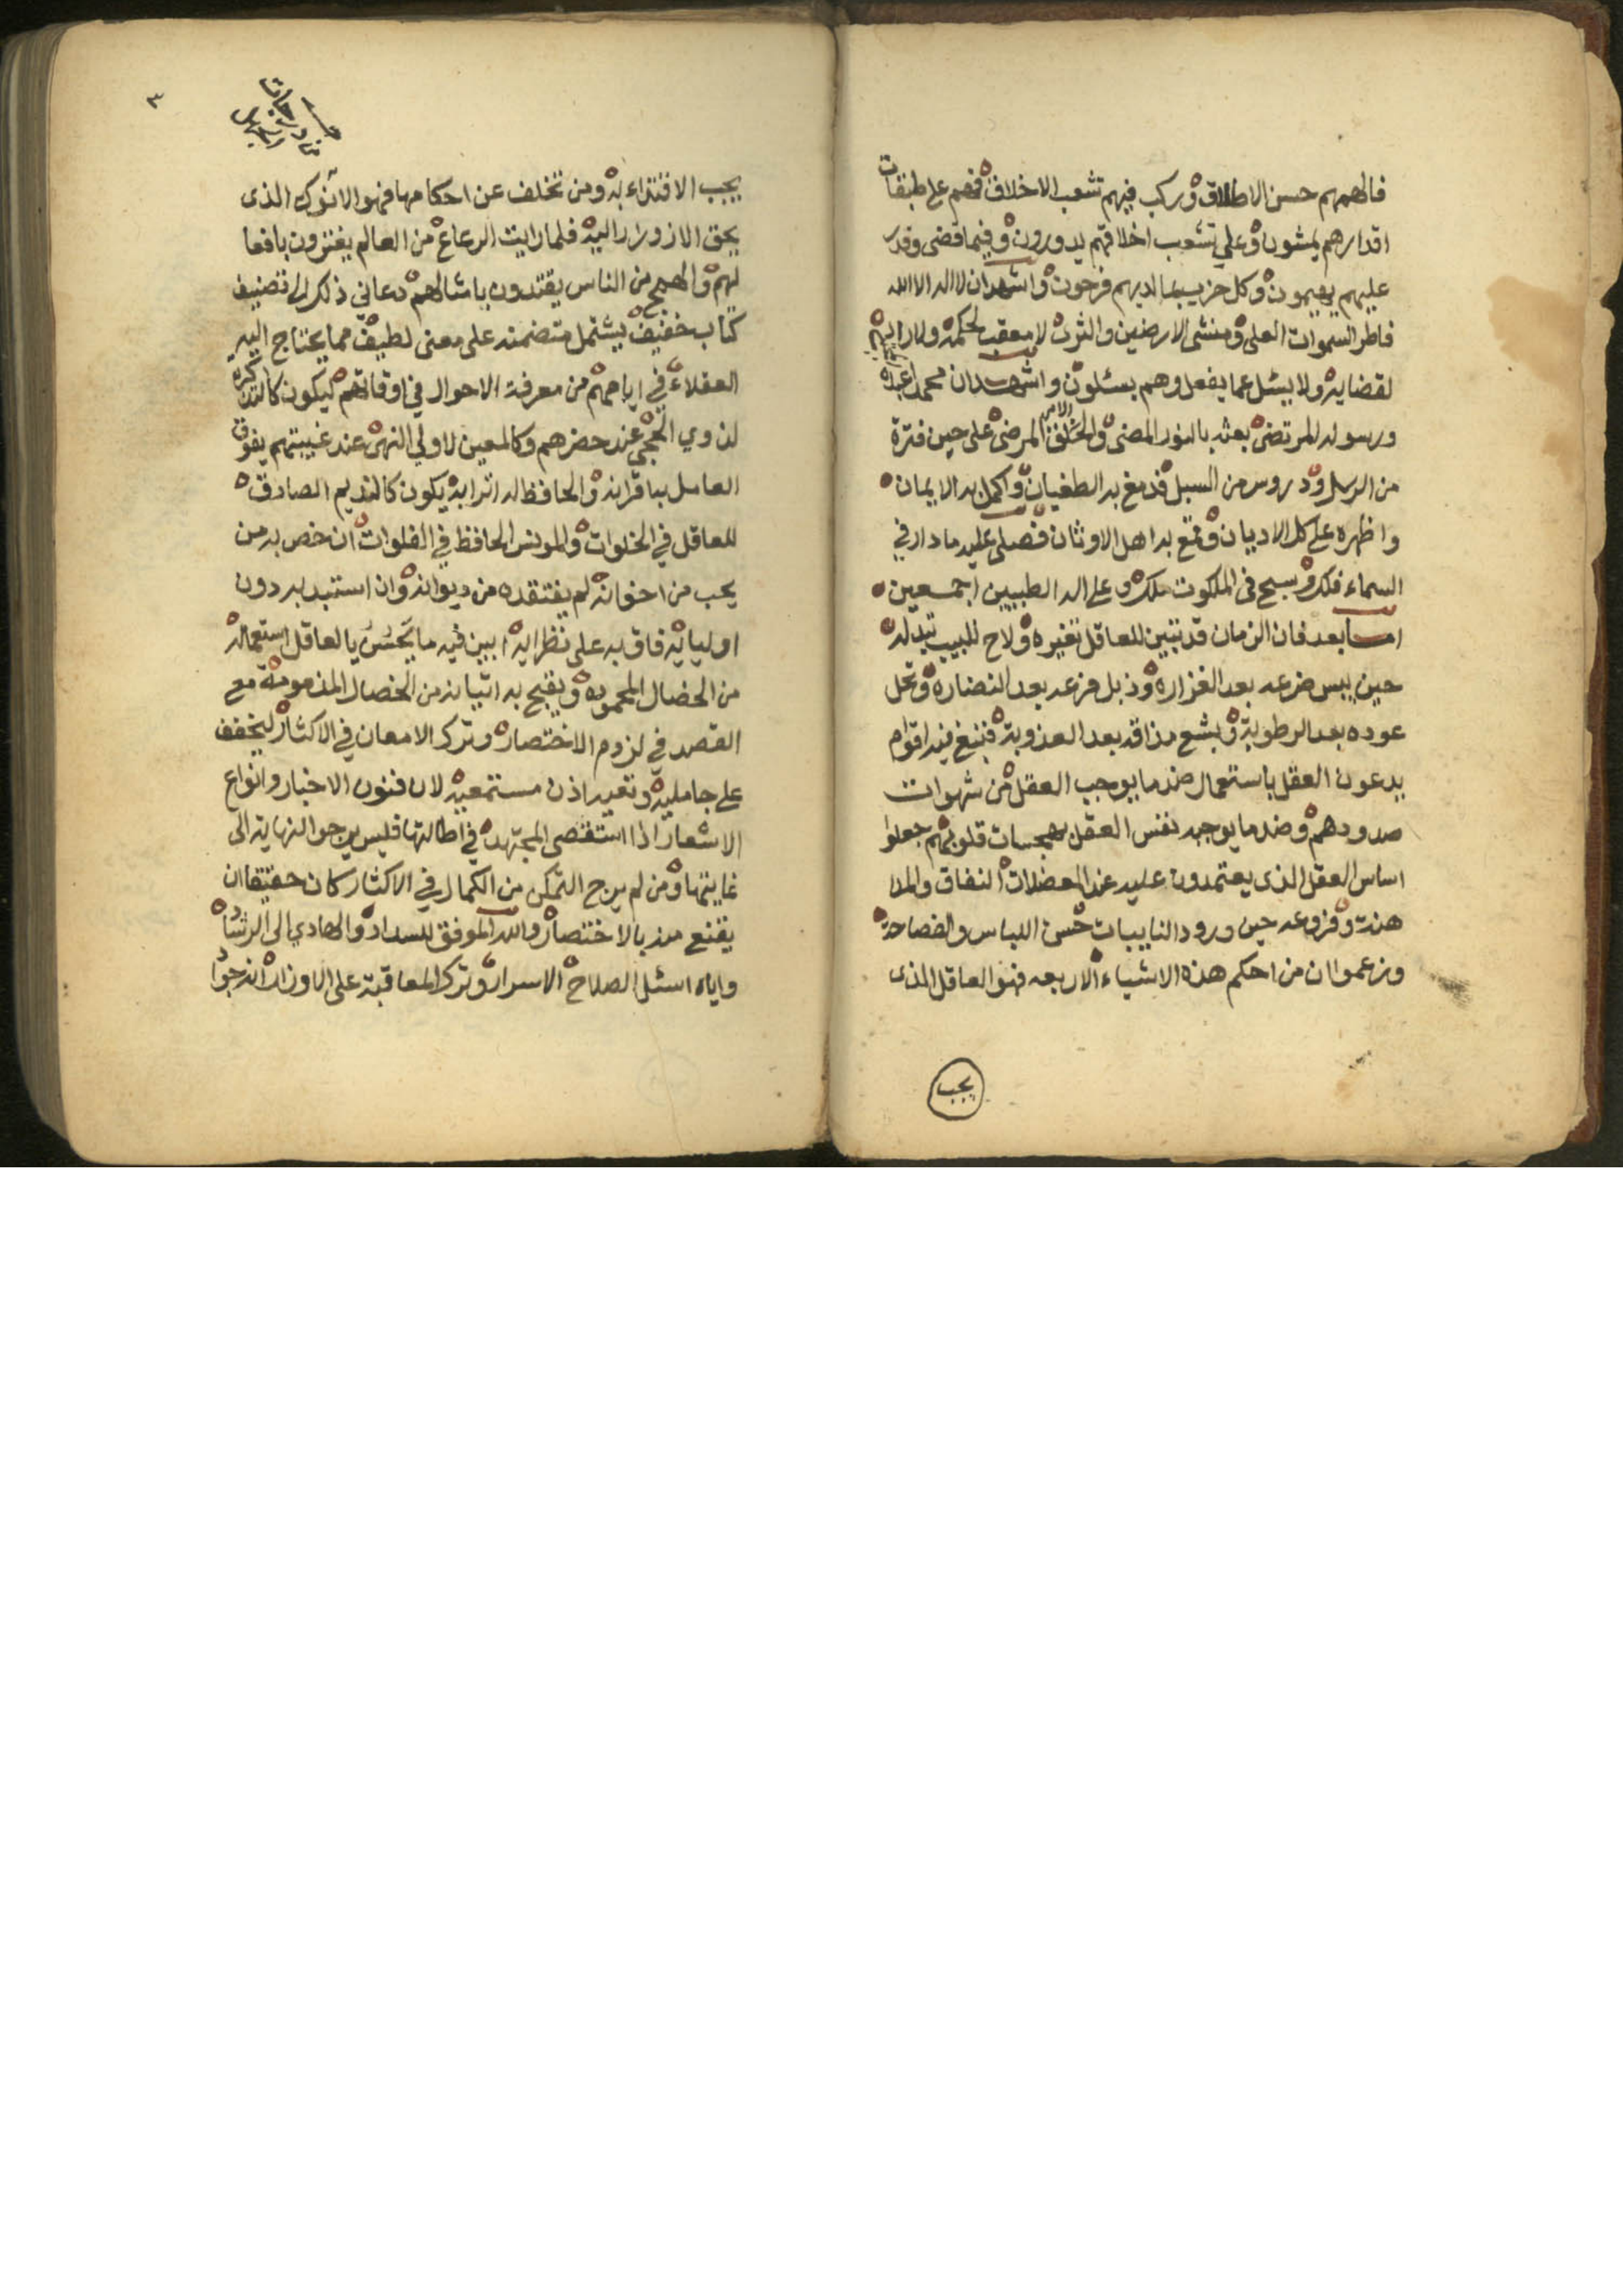 فالهمهم حسن الاطلاق وركب فيهم تشعب الاخلاق فهم على طبقات
اقدارهم يمشون وعلى تشعب اخلاقهم يدورون وفيما قضى وقدر
عليهم يهيمون وكل حزب بما لديهم فرحون واشهد ان لا اله الا الله
فاطر السموات العلى ومنشى الارضين والثرى لا معقب لحكمه ولا راد
لقضايه ولا يسئل عما يفعل وهم يسئلون واشهد ان محمدا عبده
ورسوله المرتضى بعثه بالنور المضى والامر المرضى على حين فترة
من الرسل ودروس من السبل فدمغ به الطغيان واكمل به الايمان
واظهره على كل الاديان وقمع به اهل الاوثان فصلى عليه ما دار في
السماء فلك وسبح فى الملكوت ملك وعلى اله الطيبين اجمعين
اما بعد فان الزمان قد تبين للعاقل تغيره ولاح للبيب تبدله
حين يبس ضرعه بعد الغزارة وذبل فرعه بعد النضارة ونحل
عوده بعد الرطوبة وبشع مذاقه بعد العذوبة فنبغ فيه اقوام
يدعون العقل باستعمال ضد ما يوجب العقل من شهوات
صدورهم وضد ما يوجبه نفس العقل بهجسات قلوبهم جعلوا
اساس العقل الذى يعتمدون عليه عند المعضلات النفاق والمدا
هنة وفروعه حين ورود النايبات حسن اللباس والفصاحة
وزعموا ان من احكم هذه الاشياء الاربعه فهو العاقل الذى
يجب
٣
يجب الاقتداء به ومن تخلف عن احكامها فهو الانوك الذى
يحق الازورار اليه فلما رايت الرعاع من العالم يغترون بافعا
لهم والهمج من الناس يقتدون بامثالهم دعاني ذلك الى تصنيف
كتاب خفيف يشتمل متضمنه على معنى لطيف مما يحتاج اليه
العقلاء في ايامهم من معرفة الاحوال في اوقاتهم ليكون كالتذكرة
لذوي الحجى عند حضرهم وكالمعين لاولي النهى عند غيبتهم يفوق
العامل به اقرانه والحافظ له اترابه يكون كالنديم الصادق
للعاقل في الخلوات والمونس الحافظ في الفلوات ان خص به من
يحب من اخوانه لم يفتقده من ديوانه وان استبد به دون
اوليايه فاق به على نظرايه ابين فيه ما يحسن يا لعاقل استعماله
من الخصال المحموده ويقبح به اتيانه من الخصال المذمومة مع
القصد في لزوم الاختصار وترك الامعان في الاكثار ليخفف
على حامليه وتعيه اذن مستمعيه لان فنون الاخبار وانواع
الاشعار اذا استقصى المجتهد في اطالتها فليس يرجوا النهاية الى
غايتها ومن لم يرج التمكن من الكمال في الاكثار كان حقيقا ان
يقنع منه بالاختصار والله الموفق للسداد والهادي الى الرشاد
واياه اسئل الصلاح الاسرار وترك المعاقبة على الاوزار انه جوا